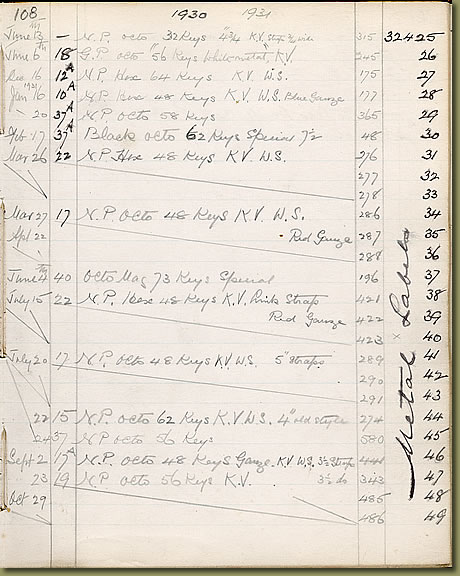 108 1930 1931
June 3 – N.P. octo 32 Keys K.V. 315 32425
June 6 18 G.P. octo "56 Keys White metal" K.V. 245 26
Dec 16 12A N.P. Hex 64 Keys K.V. W.S. 175 27
Jan 16 1931 10A N.P. Hex 48 Keys K.V. W.S. Blue Gauze 177 28
– 20 37A N.P. octo 58 Keys 365 29
Feb 17 37A Black octo 62 Keys Special 7½ 48 30
Mar 26 22 N.P. Hex 48 Keys K.V. W.S. 276 31
277 32
278 33
Mar 27 17 N.P. octo 48 Keys K.V. W.S. 286 34
Apl 22 Red Gauze 287 35
288 36
June 4th 40 Octo Mag 73 Keys Special 196 37
July 15 22 N.P. Hex 48 Keys K.V. Strap 421 38
Red Gauze 422 39
423 × 40
July 20 17 N.P. octo 48 Keys K.V. W.S. 5" straps 289 41
290 42
291 43
22 15 N.P. octo 62 Keys K.V. W.S. 4" old style 274 44
24 37 N.P. octo 56 Keys 580 45
Sept 2 17A N.P. octo 48 Keys Gauze K.V. W.S. 3½ Straps 46
23 19 N.P. octo 56 Keys K.V. 3½ do 343 47
Oct 29 485 48
486 49
Metal Labels